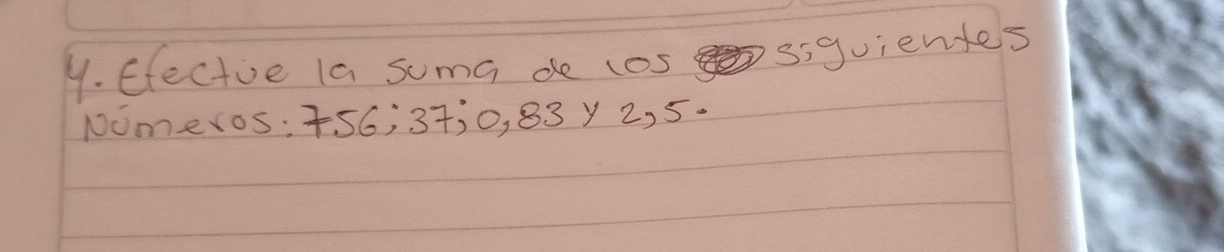 4. Efectúe la suma de los siguientes
Números: 756; 37; 0,83 y 2,5.